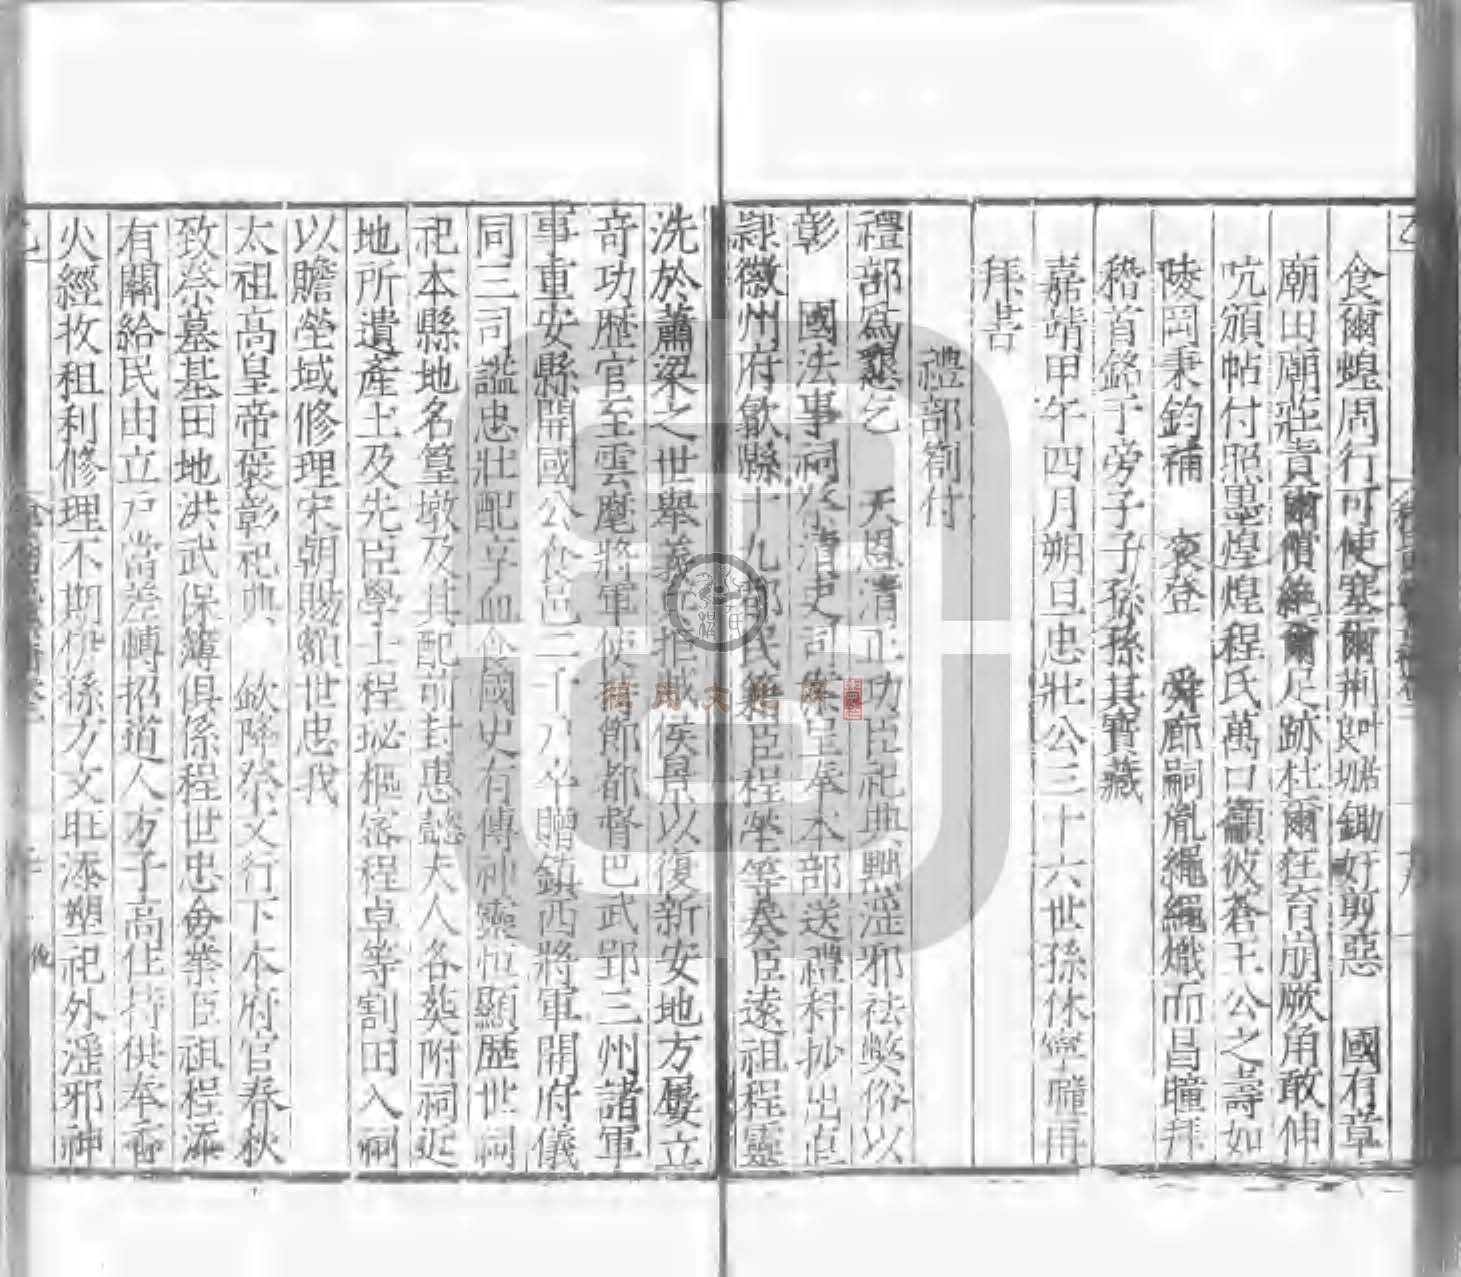 食爾蝗周行可使塞爾荆如壖鋤好剪惡　國有章
廟田廟莊責爾償維爾足跡杜爾在育崩厥角敢伸
吭頒帖付照墨煌煌程氏萬口籲彼蒼王公之壽如
陵岡秉鈞補　衮登　舜廊嗣胤繩繩熾而昌瞳拜
稽首銘于旁子子孫孫其寶藏
嘉靖甲午四月朔旦忠壯公三十六世孫休寧瞳再
拜書
禮部劄付
禮部爲懇乞　天恩清正功臣祀典黜淫邪祛獘俗以
彰　國法事祠祭清吏司案呈奉本部送禮科抄出直
隸徽州府歙縣二十九都民籍臣程瑩等奏臣遠祖程靈
洗於蕭梁之世舉義兵拒滅侯景以復新安地方屢立
奇功歷官至雲麾將軍使持節都督巴武郢三州諸軍
事重安縣開國公食邑二千戶卒贈鎮西將軍開府儀
同三司謚忠壯配享血食國史有傳神靈恒顯歷世祠
祀本縣地名篁墩及其配前封惠懿夫人各葵附祠近
地所遺產土及先臣學士程珌樞密程卓等割田入祠
以贍塋域修理宋朝賜額世忠我
太祖高皇帝褒彰祀典　欽降祭文行下本府官春秋
致祭墓基田地洪武保簿俱係程世忠僉業臣祖程添
有關給民由立戶當差轉招道人方子高住持供奉香
火經收租利修理不期佚孫方文旺添塑祀外淫邪神